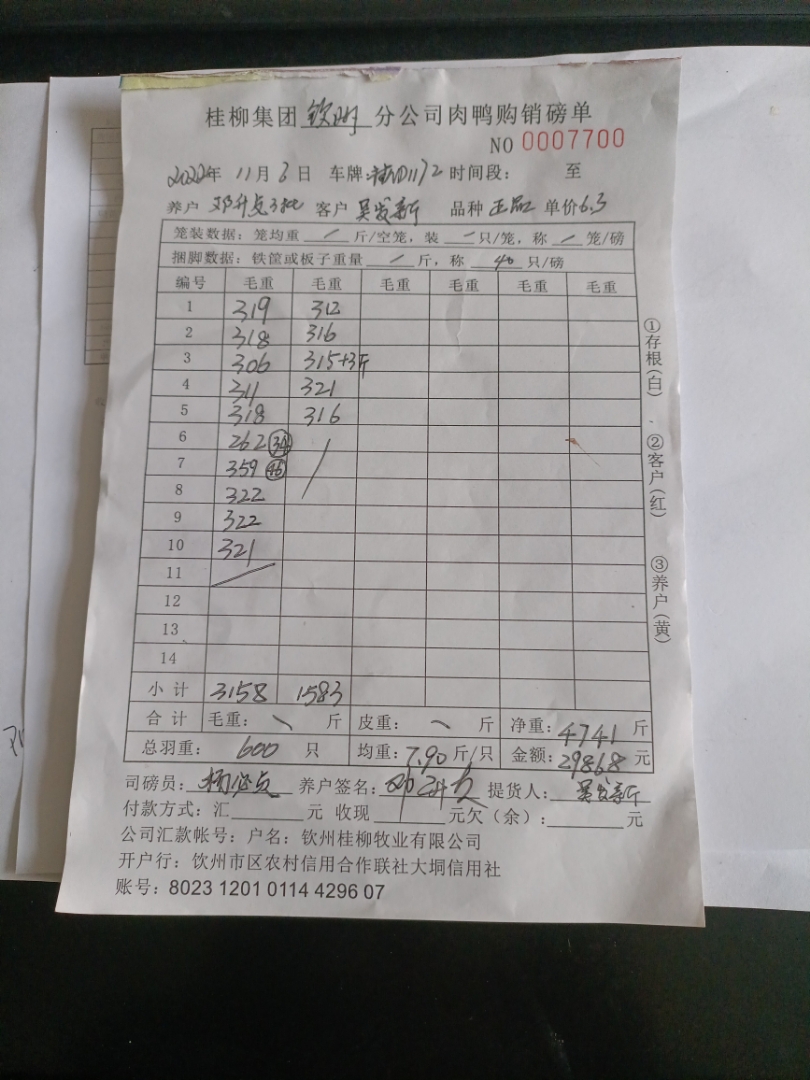 桂柳集团 钦州 分公司肉鸭购销磅单
NO 0007700
2022年 11月3日 车牌: 时间段: 至
养户 客户 吴发新 品种 正品 单价6.3
笼装数据: 笼均重 / 斤/空笼, 装 一 只/笼, 称 / 笼/磅
捆脚数据: 铁筐或板子重量 / 斤, 称 40 只/磅
编号 毛重 毛重 毛重 毛重 毛重 毛重
1 319 312
2 318 316
3 306 315+3斤
4 311 321
5 318 316
6 262 34
7 359 46
8 322
9 322
10 321
11
12
13
14
小计 3158 1583
合计 毛重: 斤 皮重: 斤 净重: 4741 斤
总羽重: 600 只 均重: 7.90 斤/只 金额: 29868 元
司磅员: 养户签名: 提货人: 吴发新
付款方式: 汇 元 收现 元欠(余): 元
公司汇款帐号: 户名: 钦州桂柳牧业有限公司
开户行: 钦州市区农村信用合作联社大垌信用社
账号: 8023 1201 0114 4296 07
①存根(白)
②客户(红)
③养户(黄)